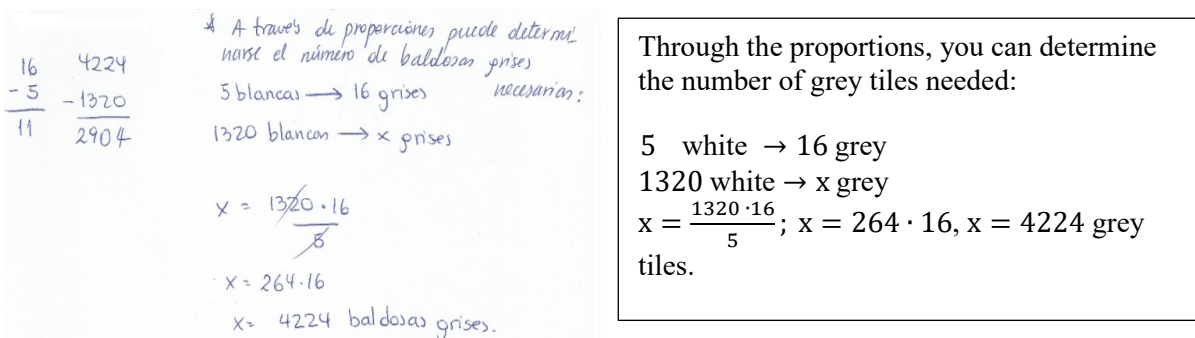 16
- 5
11
4224
-1320
2904
* A través de proporciones puede determi_
narse el número de baldosas grises
necesarias:
5 blancas → 16 grises
1320 blancas → x grises
x = 1320 · 16
5
x = 264 · 16
x = 4224 baldosas grises.
Through the proportions, you can determine
the number of grey tiles needed:
5 white → 16 grey
1320 white → x grey
x = 1320 ·16 / 5 ; x = 264 · 16, x = 4224 grey
tiles.